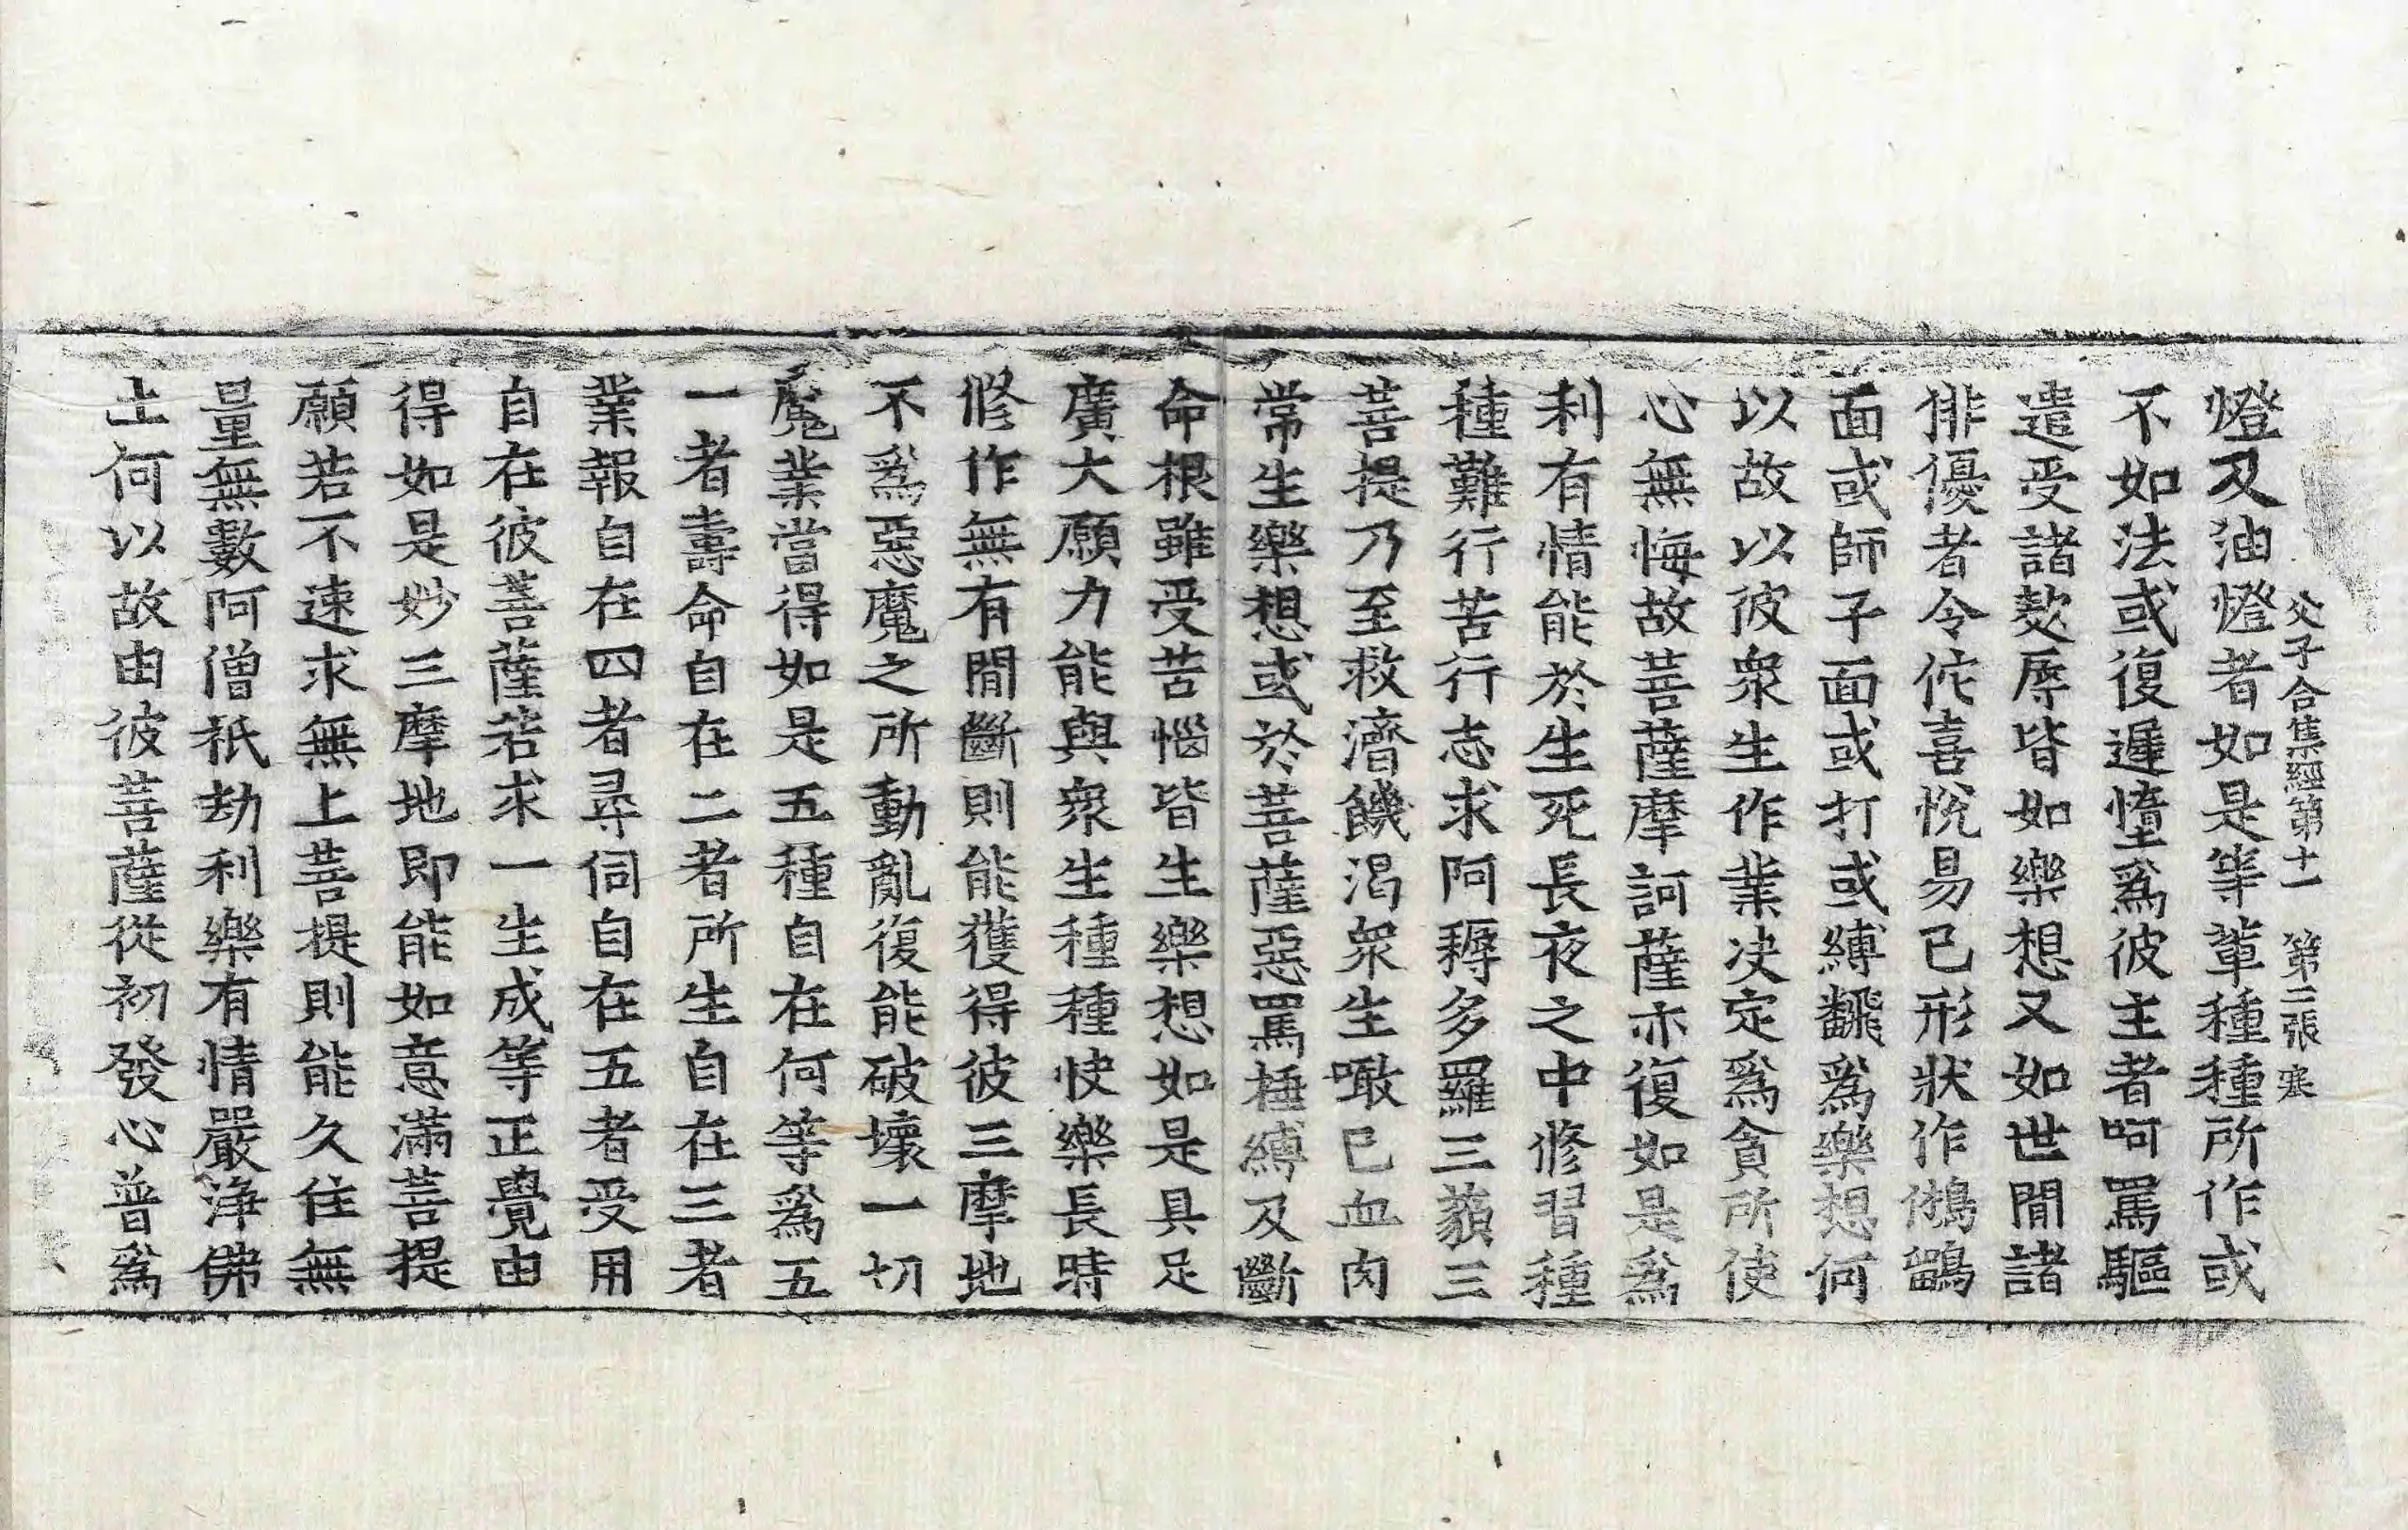 父子合集經第十一　第二張　寒
燈及油燈者如是等輩種種所作或
不如法或復遲憜爲彼主者呵罵驅
遣受諸欺辱皆如樂想又如世間諸
俳優者令佗喜悅易已形狀作鵂鶹
面或師子面或打或縛飜爲樂想何
以故以彼衆生作業决定爲貪所使
心無悔故菩薩摩訶薩亦復如是爲
利有情能於生死長夜之中修習種
種難行苦行志求阿耨多羅三藐三
菩提乃至救濟饑渴衆生噉已血肉
常生樂想或於菩薩惡罵捶縛及斷
命根雖受苦惱皆生樂想如是具足
廣大願力能與衆生種種快樂長時
修作無有間斷則能獲得彼三摩地
不爲惡魔之所動亂復能破壞一切
魔業當得如是五種自在何等爲五
一者壽命自在二者所生自在三者
業報自在四者尋伺自在五者受用
自在彼菩薩若求一生成等正覺由
得如是妙三摩地即能如意滿菩提
願若不速求無上菩提則能久住無
量無數阿僧祇劫利樂有情嚴淨佛
土何以故由彼菩薩從初發心普爲